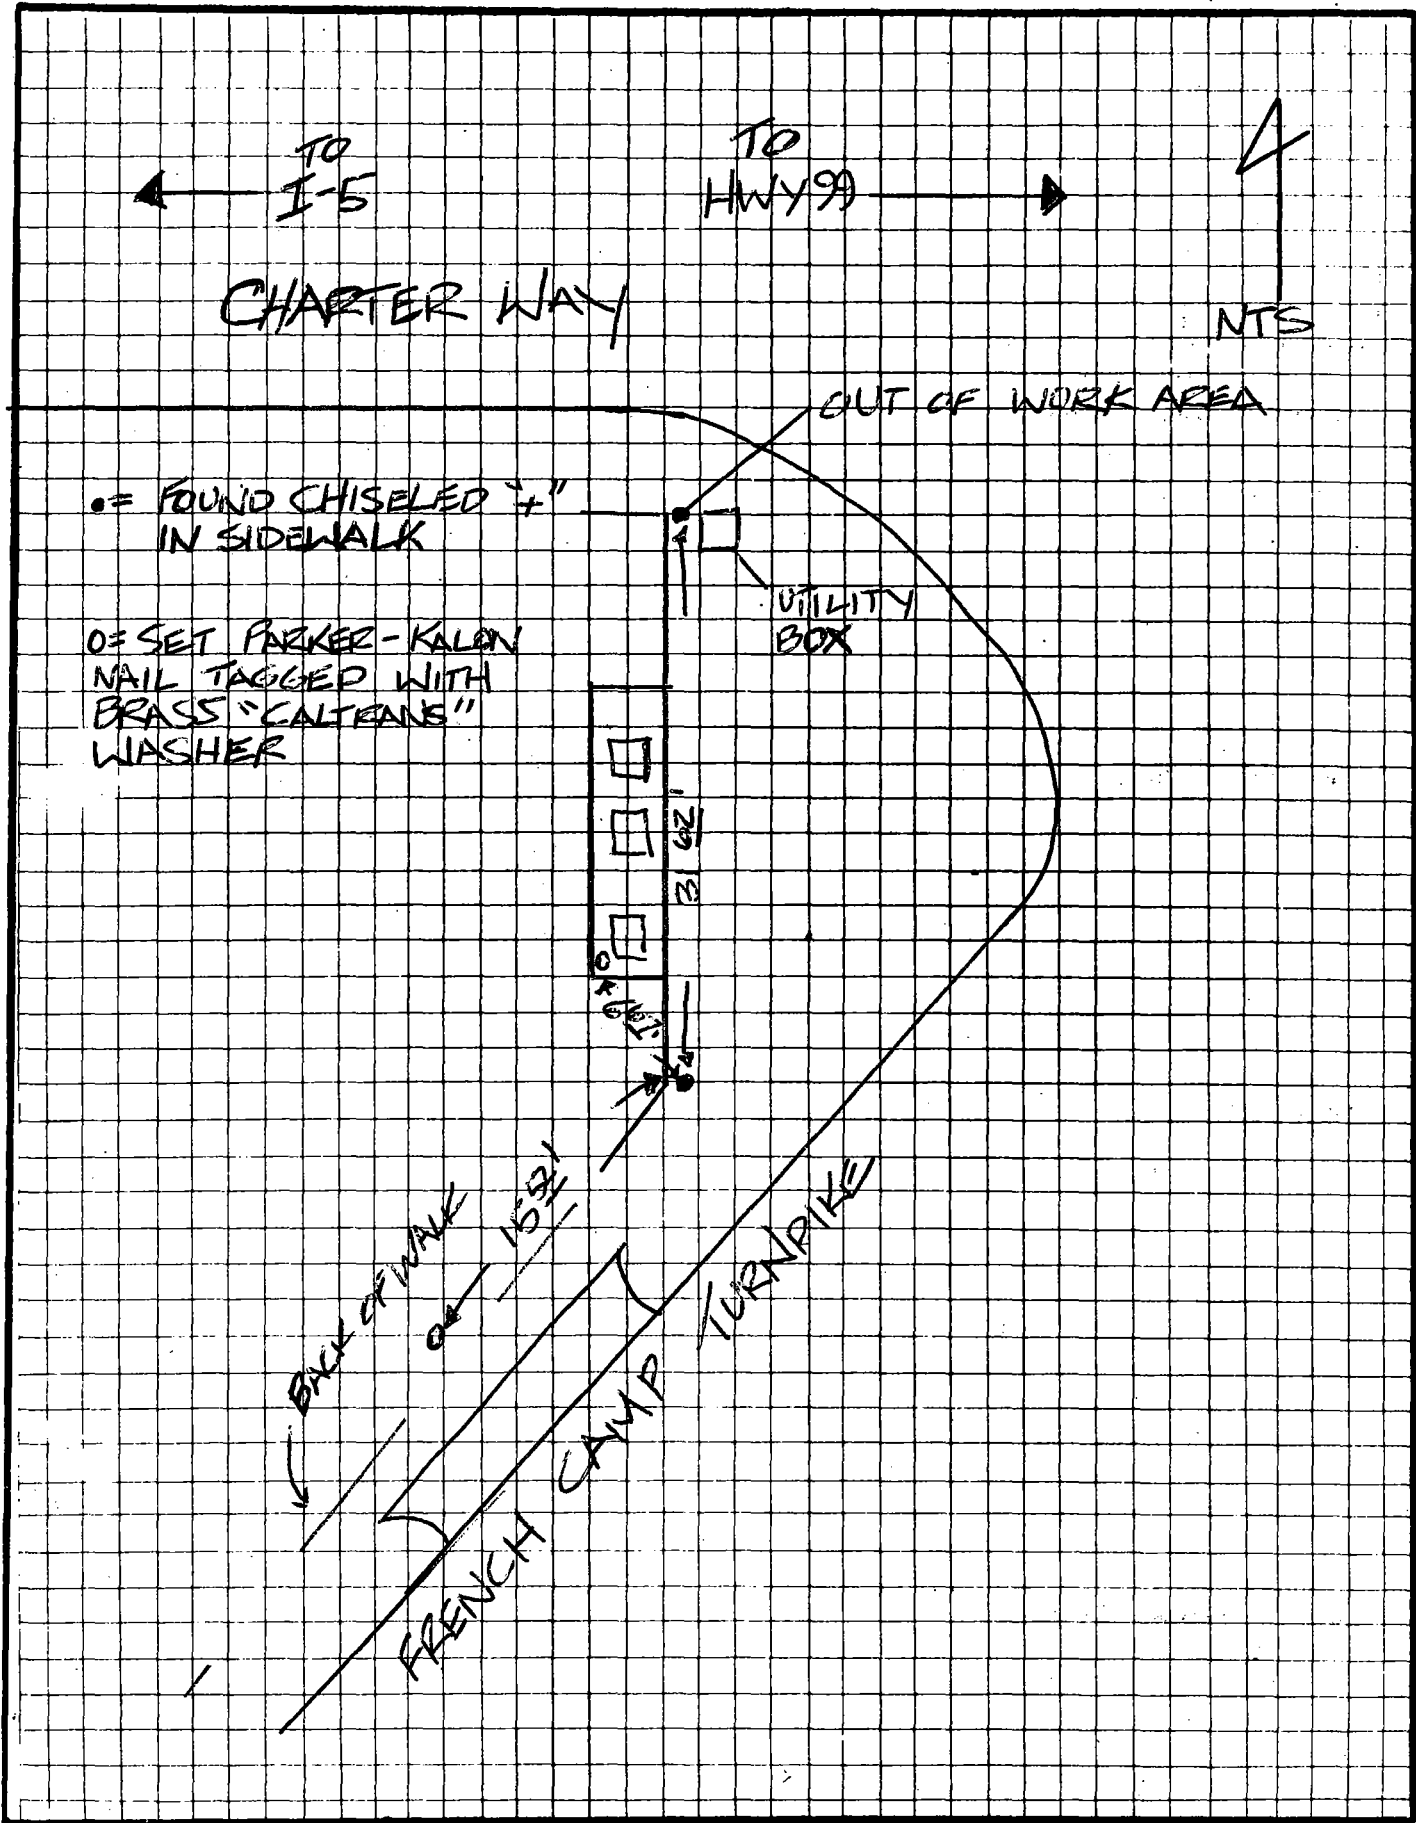 TO
I-5
TO
HWY 99
CHARTER WAY
NTS
OUT OF WORK AREA
•= FOUND CHISELED "+"
IN SIDEWALK
UTILITY
BOX
O= SET PARKER-KALON
NAIL TAGGED WITH
BRASS "CALTRANS"
WASHER
31 62'
15 52'
BACK OF WALK
FRENCH CAMP TURNPIKE